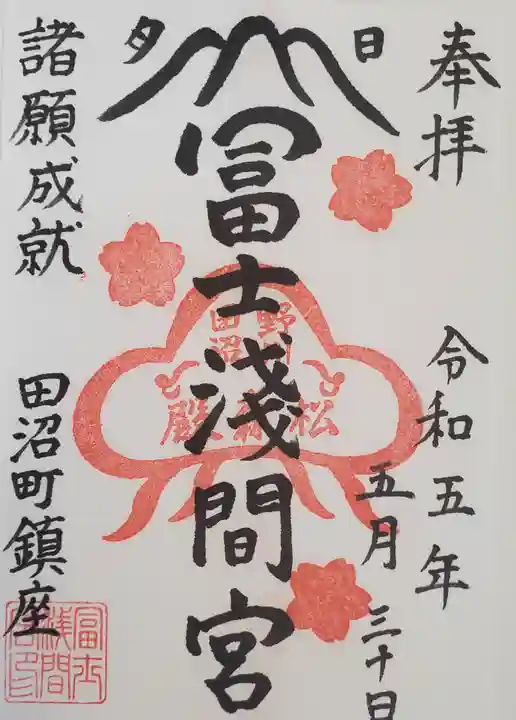 奉拝
令和五年
五月三十日
日
夕
冨士淺間宮
野州
田沼
松森殿
諸願成就
田沼町鎮座
冨士
淺間
宮印